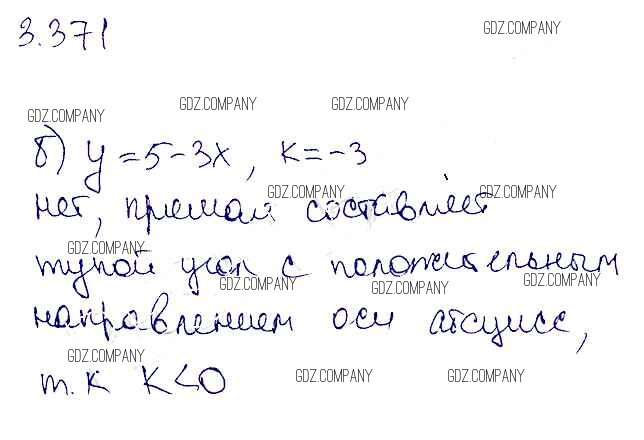 3.371
GDZ.COMPANY
GDZ.COMPANY GDZ.COMPANY GDZ.COMPANY
б) y = 5 - 3x, k = -3
GDZ.COMPANY GDZ.COMPANY
нет, прямая составляет
GDZ.COMPANY
тупой угол с положительным
GDZ.COMPANY GDZ.COMPANY GDZ.COMPANY
направлением оси абсцисс,
GDZ.COMPANY GDZ.COMPANY GDZ.COMPANY
т.к k<0